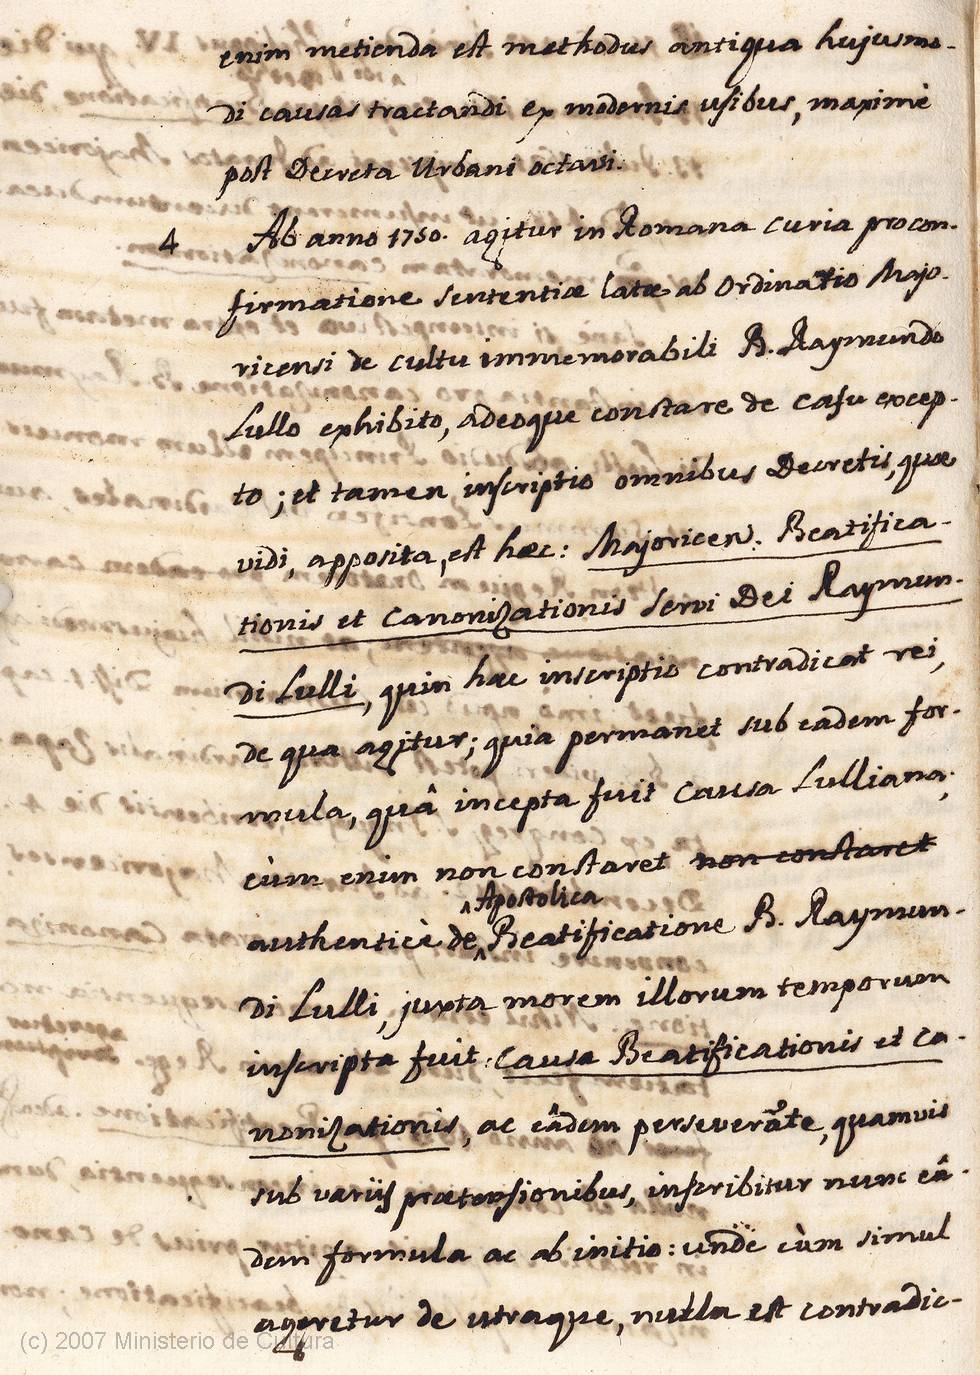 enim metienda est methodus antiqua hujusmo-
di causas tractandi ex modernis usibus, maximè
post Decreta Urbani octavi.
4 Ab anno 1750. agitur in Romana Curia pro con-
firmatione sententiæ latæ ab Ordinario Majo-
ricensi de cultu immemorabili B. Raymundo
Lullo exhibito, adeoque constare de casu excep-
to; et tamen inscriptio omnibus Decretis, quæ
vidi, apposita, est hæc: Majoricen. Beatifica-
tionis et Canonizationis Servi Dei Raymun-
di Lulli, quin hæc inscriptio contradicat rei,
de qua agitur; quia permanet sub eadem for-
mula, quâ incepta fuit Causa Lulliana;
cùm enim non constaret non constaret
Apostolica
authenticè de Beatificatione B. Raymun-
di Lulli, juxta morem illorum temporum
inscripta fuit: Causa Beatificationis et Ca-
nonizationis, ac eâdem perseverãte, quamvis
sub variis prætensionibus, inscribitur nunc eâ-
dem formula ac ab initio: unde cùm simul
ageretur de utraque, nulla est contradic-
(c) 2007 Ministerio de Cultura